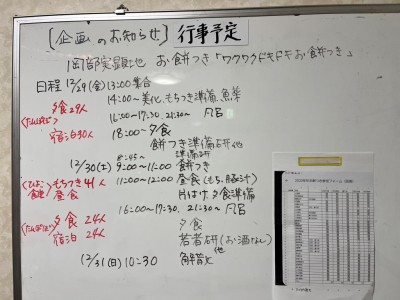 [企画のお知らせ] 行事予定
岡部実顕地 お餅つき「ワクワクドキドキお餅つき」
日程 12/29(金) 13:00 集合
14:00〜美化、もちつき準備、魚菜
夕食29人 16:00〜17:30, 21:30〜 风呂
(たんぽぽ)
宿泊30人 18:00〜夕食
餅つき準備研他
8:45〜 準備研
12/30(土) 9:00〜11:00 餅つき
(ひよこ食堂) もちつき41人 11:00〜12:00 昼食(もち、豚汁)
昼食 片付け、夕食準備
16:00〜17:30, 21:30〜 风呂
(たんぽぽ) 夕食 24人 夕食
宿泊 24人 若者研(お酒なし)他
12/31(日) 10:30 解散